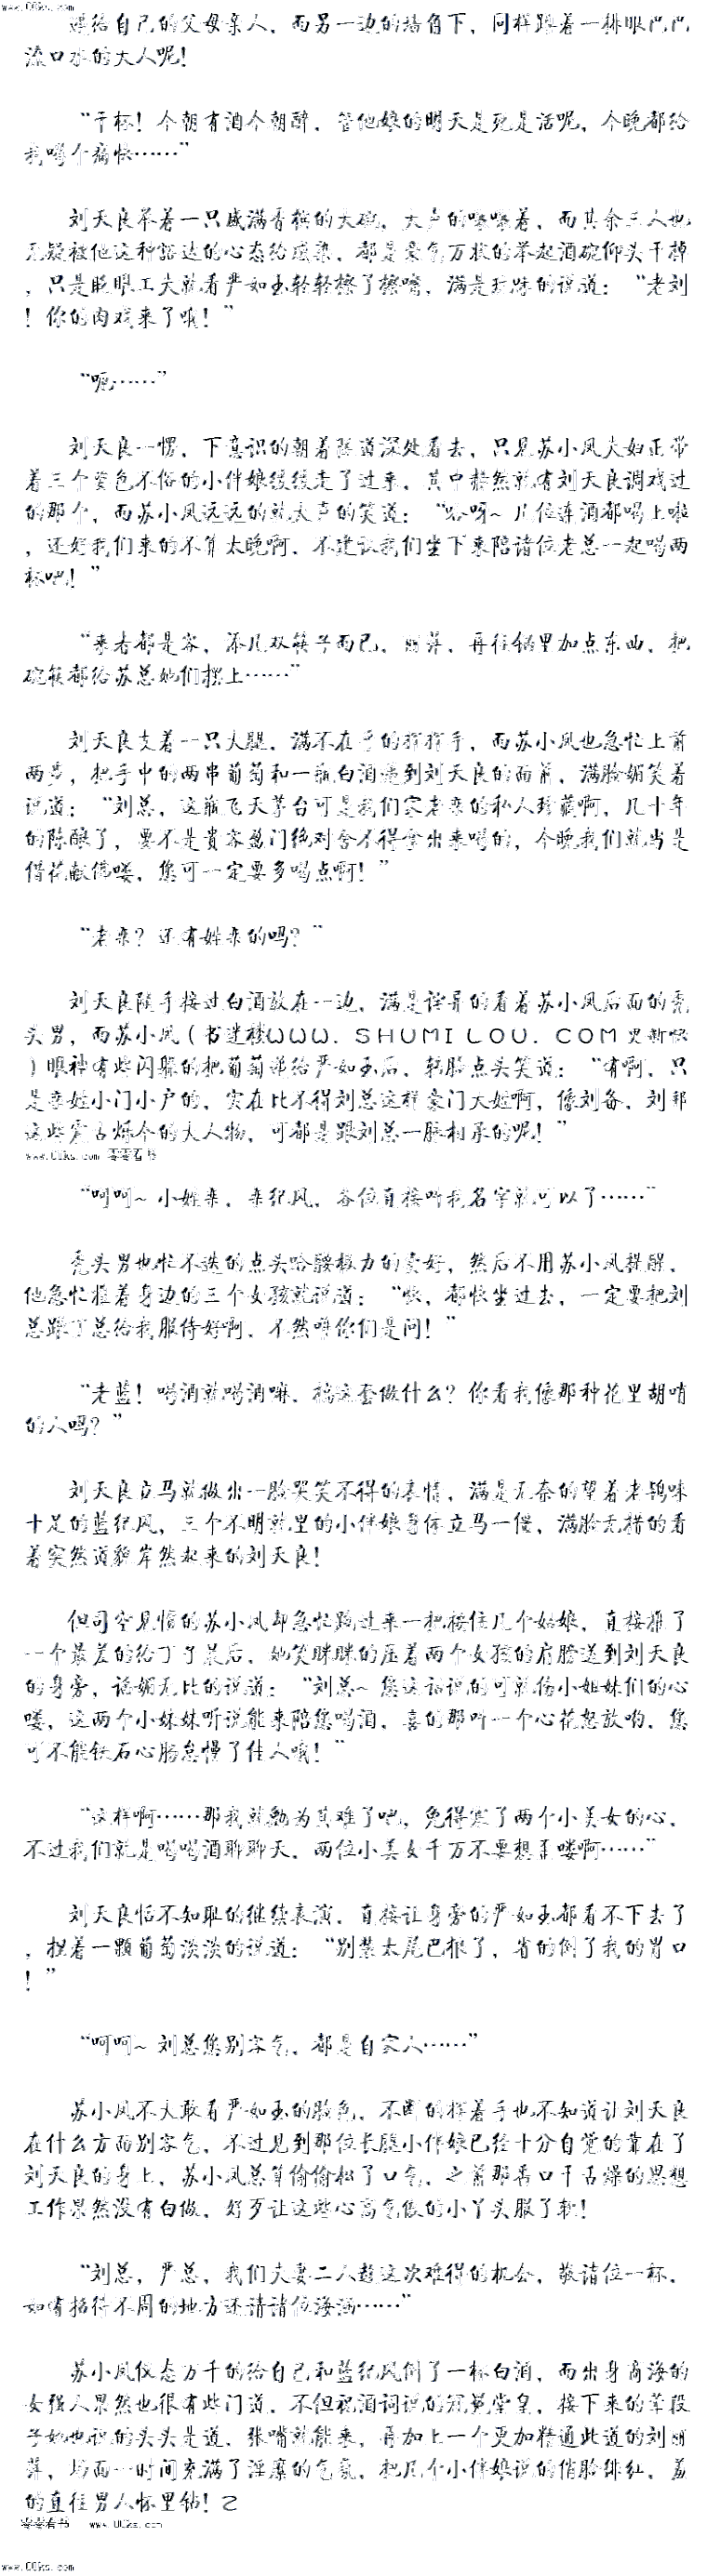 www.00ks.com
递给自己的父母亲人，而另一边的墙角下，同样蹲着一排眼巴巴
流口水的大人呢！
“干杯！今朝有酒今朝醉，管他娘的明天是死是活呢，今晚都给
我喝个痛快……”
刘天良举着一只盛满香槟的大碗，大声的嚷嚷着，而其余三人也
无疑被他这种豁达的心态给感染，都是豪气万状的举起酒碗仰头干掉
，只是眨眼工夫就看严如玉轻轻擦了擦嘴，满是玩味的说道：“老刘
！你的肉戏来了哦！”
“呃……”
刘天良一愣，下意识的朝着隧道深处看去，只见苏小凤夫妇正带
着三个姿色不俗的小伴娘缓缓走了过来，其中赫然就有刘天良调戏过
的那个，而苏小凤远远的就大声的笑道：“哈呀~几位连酒都喝上啦
，还好我们来的不算太晚啊，不建议我们坐下来陪诸位老总一起喝两
杯吧！”
“来者都是客，添几双筷子而已，丽萍，再往锅里加点东西，把
碗筷都给苏总她们摆上……”
刘天良支着一只大腿，满不在乎的挥挥手，而苏小凤也急忙上前
两步，把手中的两串葡萄和一瓶白酒递到刘天良的面前，满脸媚笑着
说道：“刘总，这瓶飞天茅台可是我们家老栾的私人珍藏啊，几十年
的陈酿了，要不是贵客盈门绝对舍不得拿出来喝的，今晚我们就当是
借花献佛喽，您可一定要多喝点啊！”
“老栾？还有姓栾的吗？”
刘天良随手接过白酒放在一边，满是诧异的看着苏小凤后面的秃
头男，而苏小凤（书迷楼WWW．SHUMILOU．COM更新快
）眼神有些闪躲的把葡萄递给严如玉后，转脸点头笑道：“有啊，只
是栾姓小门小户的，实在比不得刘总这样豪门大姓啊，像刘备、刘邦
这些震古烁今的大人物，可都是跟刘总一脉相承的呢！”
www.00ks.com 零零看书
“呵呵~小姓栾，栾纪风，各位直接叫我名字就可以了……”
秃头男也忙不迭的点头哈腰极力的卖好，然后不用苏小凤提醒，
他急忙推着身边的三个女孩就说道：“快，都快坐过去，一定要把刘
总跟丁总给我服侍好啊，不然唯你们是问！”
“老蓝！喝酒就喝酒嘛，搞这套做什么？你看我像那种花里胡哨
的人吗？”
刘天良立马就做出一脸哭笑不得的表情，满是无奈的望着老鸨味
十足的蓝纪风，三个不明就里的小伴娘身体立马一僵，满脸无措的看
着突然道貌岸然起来的刘天良！
但司空见惯的苏小凤却急忙跑过来一把搂住几个姑娘，直接推了
一个最差的给丁子晨后，她笑眯眯的压着两个女孩的肩膀送到刘天良
的身旁，谄媚无比的说道：“刘总~您这话说的可就伤小姐妹们的心
喽，这两个小妹妹听说能来陪您喝酒，喜的那叫一个心花怒放哟，您
可不能铁石心肠怠慢了佳人哦！”
“这样啊……那我就勉为其难了吧，免得寒了两个小美女的心，
不过我们就是喝喝酒聊聊天，两位小美女千万不要想歪喽啊……”
刘天良恬不知耻的继续表演，直接让身旁的严如玉都看不下去了
，捏着一颗葡萄淡淡的说道：“别装大尾巴狼了，省的倒了我的胃口
！”
“呵呵~刘总您别客气，都是自家人……”
苏小凤不大敢看严如玉的脸色，不断的挥着手也不知道让刘天良
在什么方面别客气，不过见到那位长腿小伴娘已经十分自觉的靠在了
刘天良的身上，苏小凤总算偷偷松了口气，之前那番口干舌燥的思想
工作果然没有白做，好歹让这些心高气傲的小丫头服了软！
“刘总，严总，我们夫妻二人趁这次难得的机会，敬诸位一杯，
如有招待不周的地方还请诸位海涵……”
苏小凤仪态万千的给自己和蓝纪风倒了一杯白酒，而出身商海的
女强人果然也很有些门道，不但祝酒词说的冠冕堂皇，接下来的荤段
子她也说的头头是道，张嘴就能来，再加上一个更加精通此道的刘丽
萍，场面一时间充满了淫靡的气氛，把几个小伴娘说的俏脸绯红，羞
的直往男人怀里钻！2
零零看书 www.00ks.com
www.00ks.com